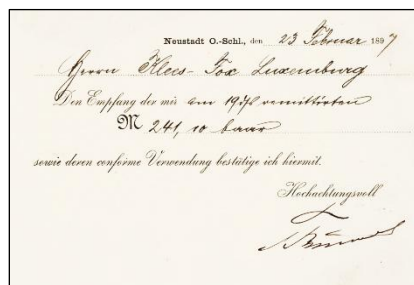 Neustadt O.-Schl., den 23 Februar 1897
Herrn Klees-Fox Luxemburg
Den Empfang der mir am 19/2 remittirten
M 241,10 baar
sowie deren conforme Verwendung bestätige ich hiermit.
Hochachtungsvoll